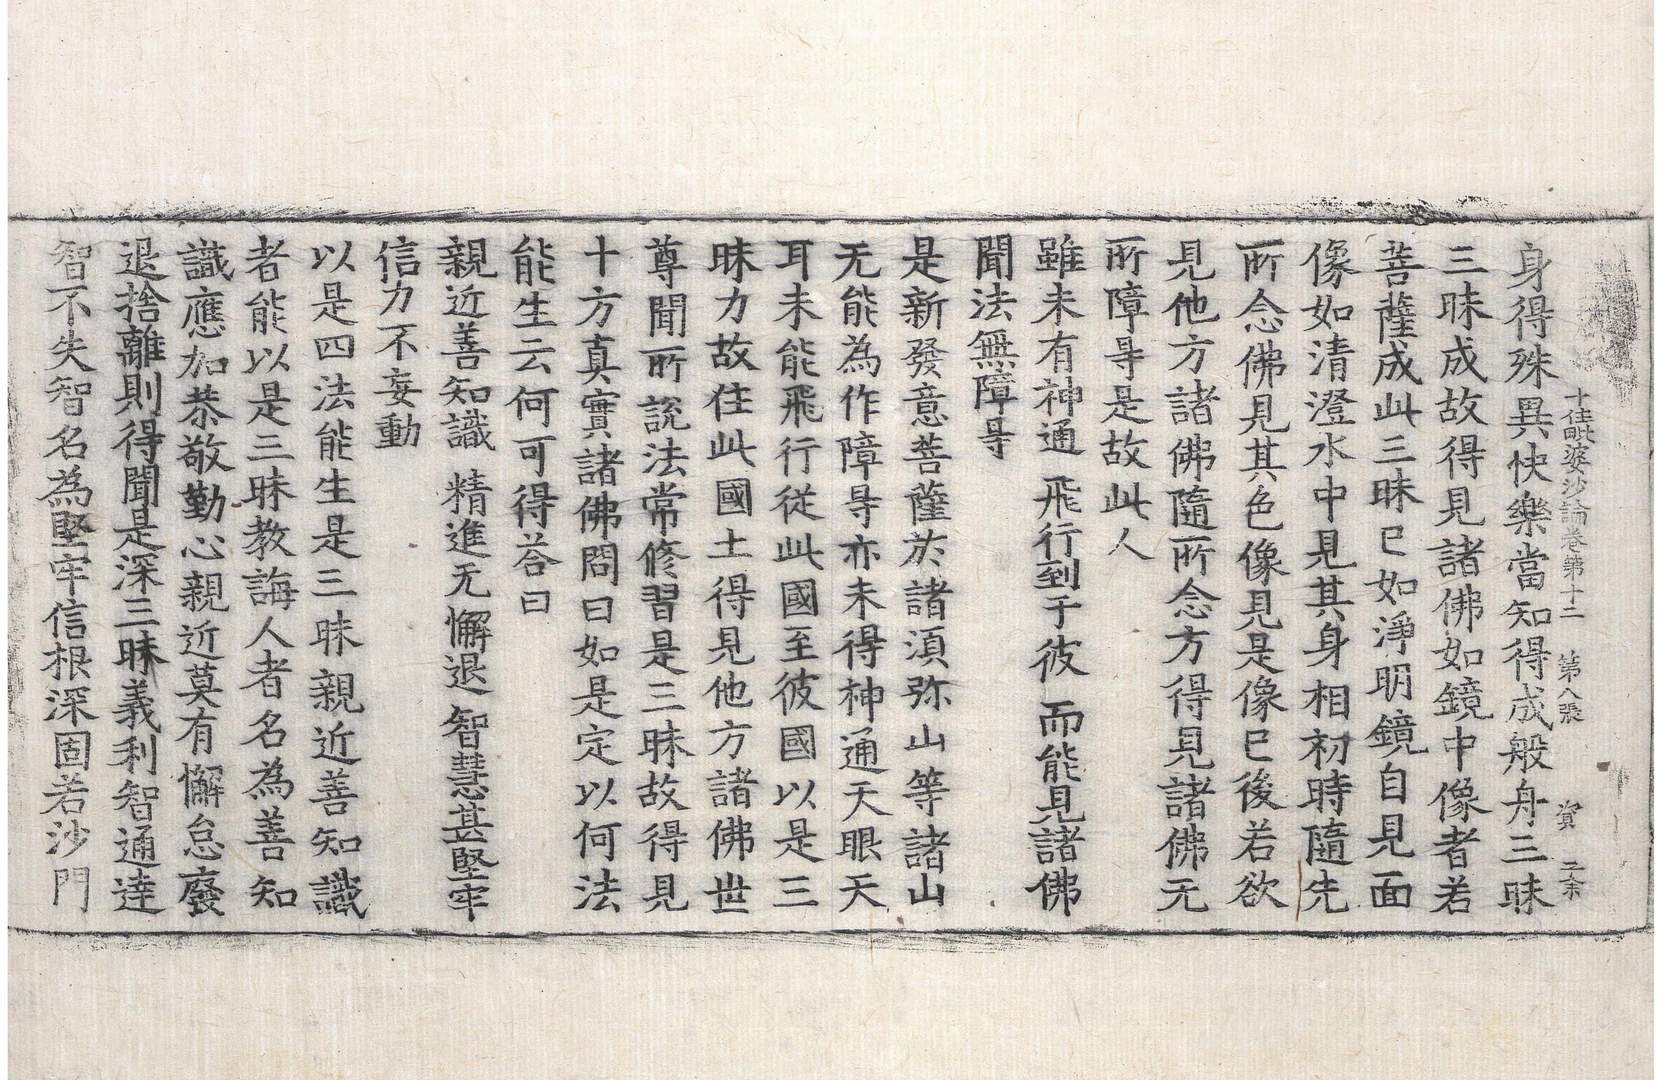 十住毗婆沙論卷第十二 第八張 資
身得殊異快樂當知得成般舟三昧
三昧成故得見諸佛如鏡中像者若
菩薩成此三昧已如淨明鏡自見面
像如清澄水中見其身相初時隨先
所念佛見其色像見是像已後若欲
見他方諸佛隨所念方得見諸佛无
所障㝵是故此人
雖未有神通 飛行到于彼 而能見諸佛
聞法無障㝵
是新發意菩薩於諸須弥山等諸山
无能為作障㝵亦未得神通天眼天
耳未能飛行從此國至彼國以是三
昧力故住此國土得見他方諸佛世
尊聞所說法常修習是三昧故得見
十方真實諸佛問曰如是定以何法
能生云何可得荅曰
親近善知識 精進无懈退 智慧甚堅牢
信力不妄動
以是四法能生是三昧親近善知識
者能以是三昧教誨人者名為善知
識應加恭敬勤心親近莫有懈怠廢
退捨離則得聞是深三昧義利智通達
智不失智名為堅牢信根深固若沙門